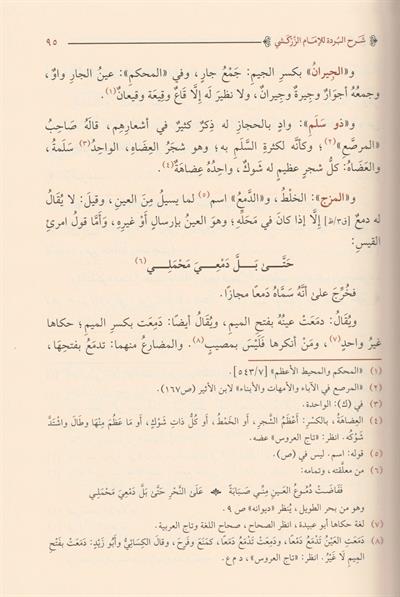 شَرح البُردة للإمَام الزَّرْكَشي
٩٥
و«الجِيرانُ» بكسرِ الجيمِ: جَمْعُ جارٍ، وفي «المحكمِ»: عينُ الجارِ واوٌ،
وجمعُهُ أجوَارٌ وجِيرةٌ وجِيرانٌ، ولا نظيرَ له إلَّا قَاعٌ وقِيعَة وقيعانٌ(١).
و«ذو سَلَمٍ»: وادٍ بالحجازِ له ذِكرٌ كثيرٌ في أشعارِهِم، قالَهُ صَاحِبُ
«المرصَّعِ»(٢)؛ وكأنَّه لكثرةِ السَّلَمِ به؛ وهو شجَرُ العِضَاهِ، الواحِدُ(٣) سَلَمةُ،
والعَضَاهُ: كلُّ شجرٍ عظيمٍ له شَوكٌ، واحِدُهُ عِضاهةٌ(٤).
و«المزج»: الخلْطُ، و«الدَّمعُ» اسم(٥) لما يسيلُ مِنَ العينِ، وقيلَ: لا يُقَالُ
له دمعٌ [ق٣/ظ] إلَّا إذا كانَ في مَحَلِّه؛ وهوَ العينُ بإرسالٍ أوْ غيرِهِ، وَأمَّا قولُ امرئِ
القيسِ:
حَتَّىٰ بَلَّ دَمْعِيَ مَحْمَلِي(٦)
فخُرِّجَ علىٰ أنَّهُ سَمَّاهُ دَمعًا مجازًا.
ويُقَالُ: دمَعَتْ عينُهُ بفتحِ الميمِ، ويُقَالُ أيضًا: دَمِعَت بكسرِ الميمِ؛ حكاها
غيرُ واحدٍ(٧)، ومَنْ أنكرَها فَلَيْسَ بمصيبٍ(٨). والمضارعُ منهما: تدمَعُ بفتحِهَا،
(١) «المحكم والمحيط الأعظم» [٧/ ٥٤٣].
(٢) «المرصع في الآباء والأمهات والأبناء» لابن الأثير (ص١٦٧).
(٣) في (ك): الواحدة.
(٤) العِضاهَةُ، بالكسْرِ: أَعْظَمُ الشَّجرِ، أو الخَمْطُ، أو كُلُّ ذاتِ شَوْكٍ، أو مَا عَظُمَ مِنْهَا وطَالَ واشْتَدَّ
شَوْكُه. انظر: «تاج العروس» عضه.
(٥) قوله: اسم. ليس في (ص).
(٦) من معلَّقته، وتمامه:
فَفَاضَتْ دُمُوعُ العَينِ مِنِّي صَبَابَةً عَلَىٰ النَّحْرِ حَتَّىٰ بَلَّ دَمْعِيَ مَحْمَلِي
وهو من بحر الطويل، يُنظر «ديوانه» ص ٩.
(٧) لغة حكاها أبو عبيدة، انظر الصحاح، صحاح اللغة وتاج العربية.
(٨) دَمَعَتِ العَيْنُ تَدْمَعُ دَمْعًا، ودَمِعَتْ تَدْمَعُ دَمَعًا، كمَنَعَ وفَرِحَ، وقالَ الكِسائيُّ وأبُو زَيْدٍ: دَمَعَتْ بفَتْحِ
المِيمِ لَا غَيْرُ. انظر: «تاج العروس»، د م ع.